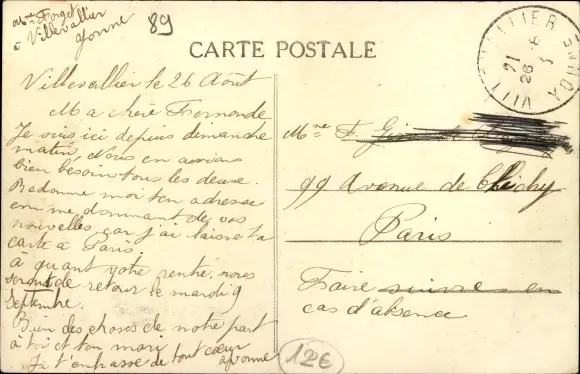 Mme Forget
à Villevallier
Yonne
89
CARTE POSTALE
VILLEVALLIER
YONNE
21
26
Villevallier le 26 Août
Ma chère Fernande
Je suis ici depuis dimanche
matin, Nous en avions
bien besoin tous les deux.
Redonne moi ton adresse
en me donnant de vos
nouvelles car j'ai laissé ta
carte à Paris.
à quant votre rentré, nous
serons de retour le mardi 9
Septembre.
Bien des choses de notre part
à toi et ton mari
Je t'embrasse de tout cœur
Yvonne
Mme F.
99 Avenue de Clichy
Paris
Faire suivre en
cas d'absence
12€